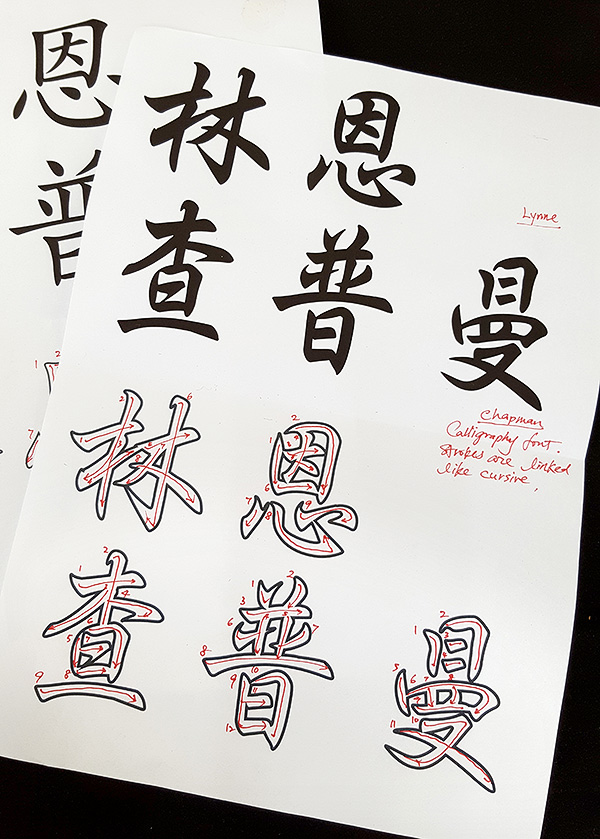 恩
普
林恩
Lynne
查普曼
chapman
Calligraphy font.
strokes are linked
like cursive,
林恩
查普曼